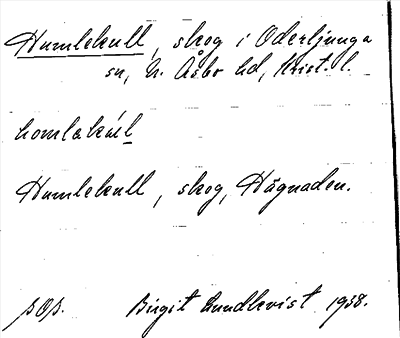 Humlekull, skog i Oderljunga
sn, N. Åsbo hd, Krist. l.
homləkúl
Humlekull, skog, Hägnaden.
Birgit Lundkvist 1938.